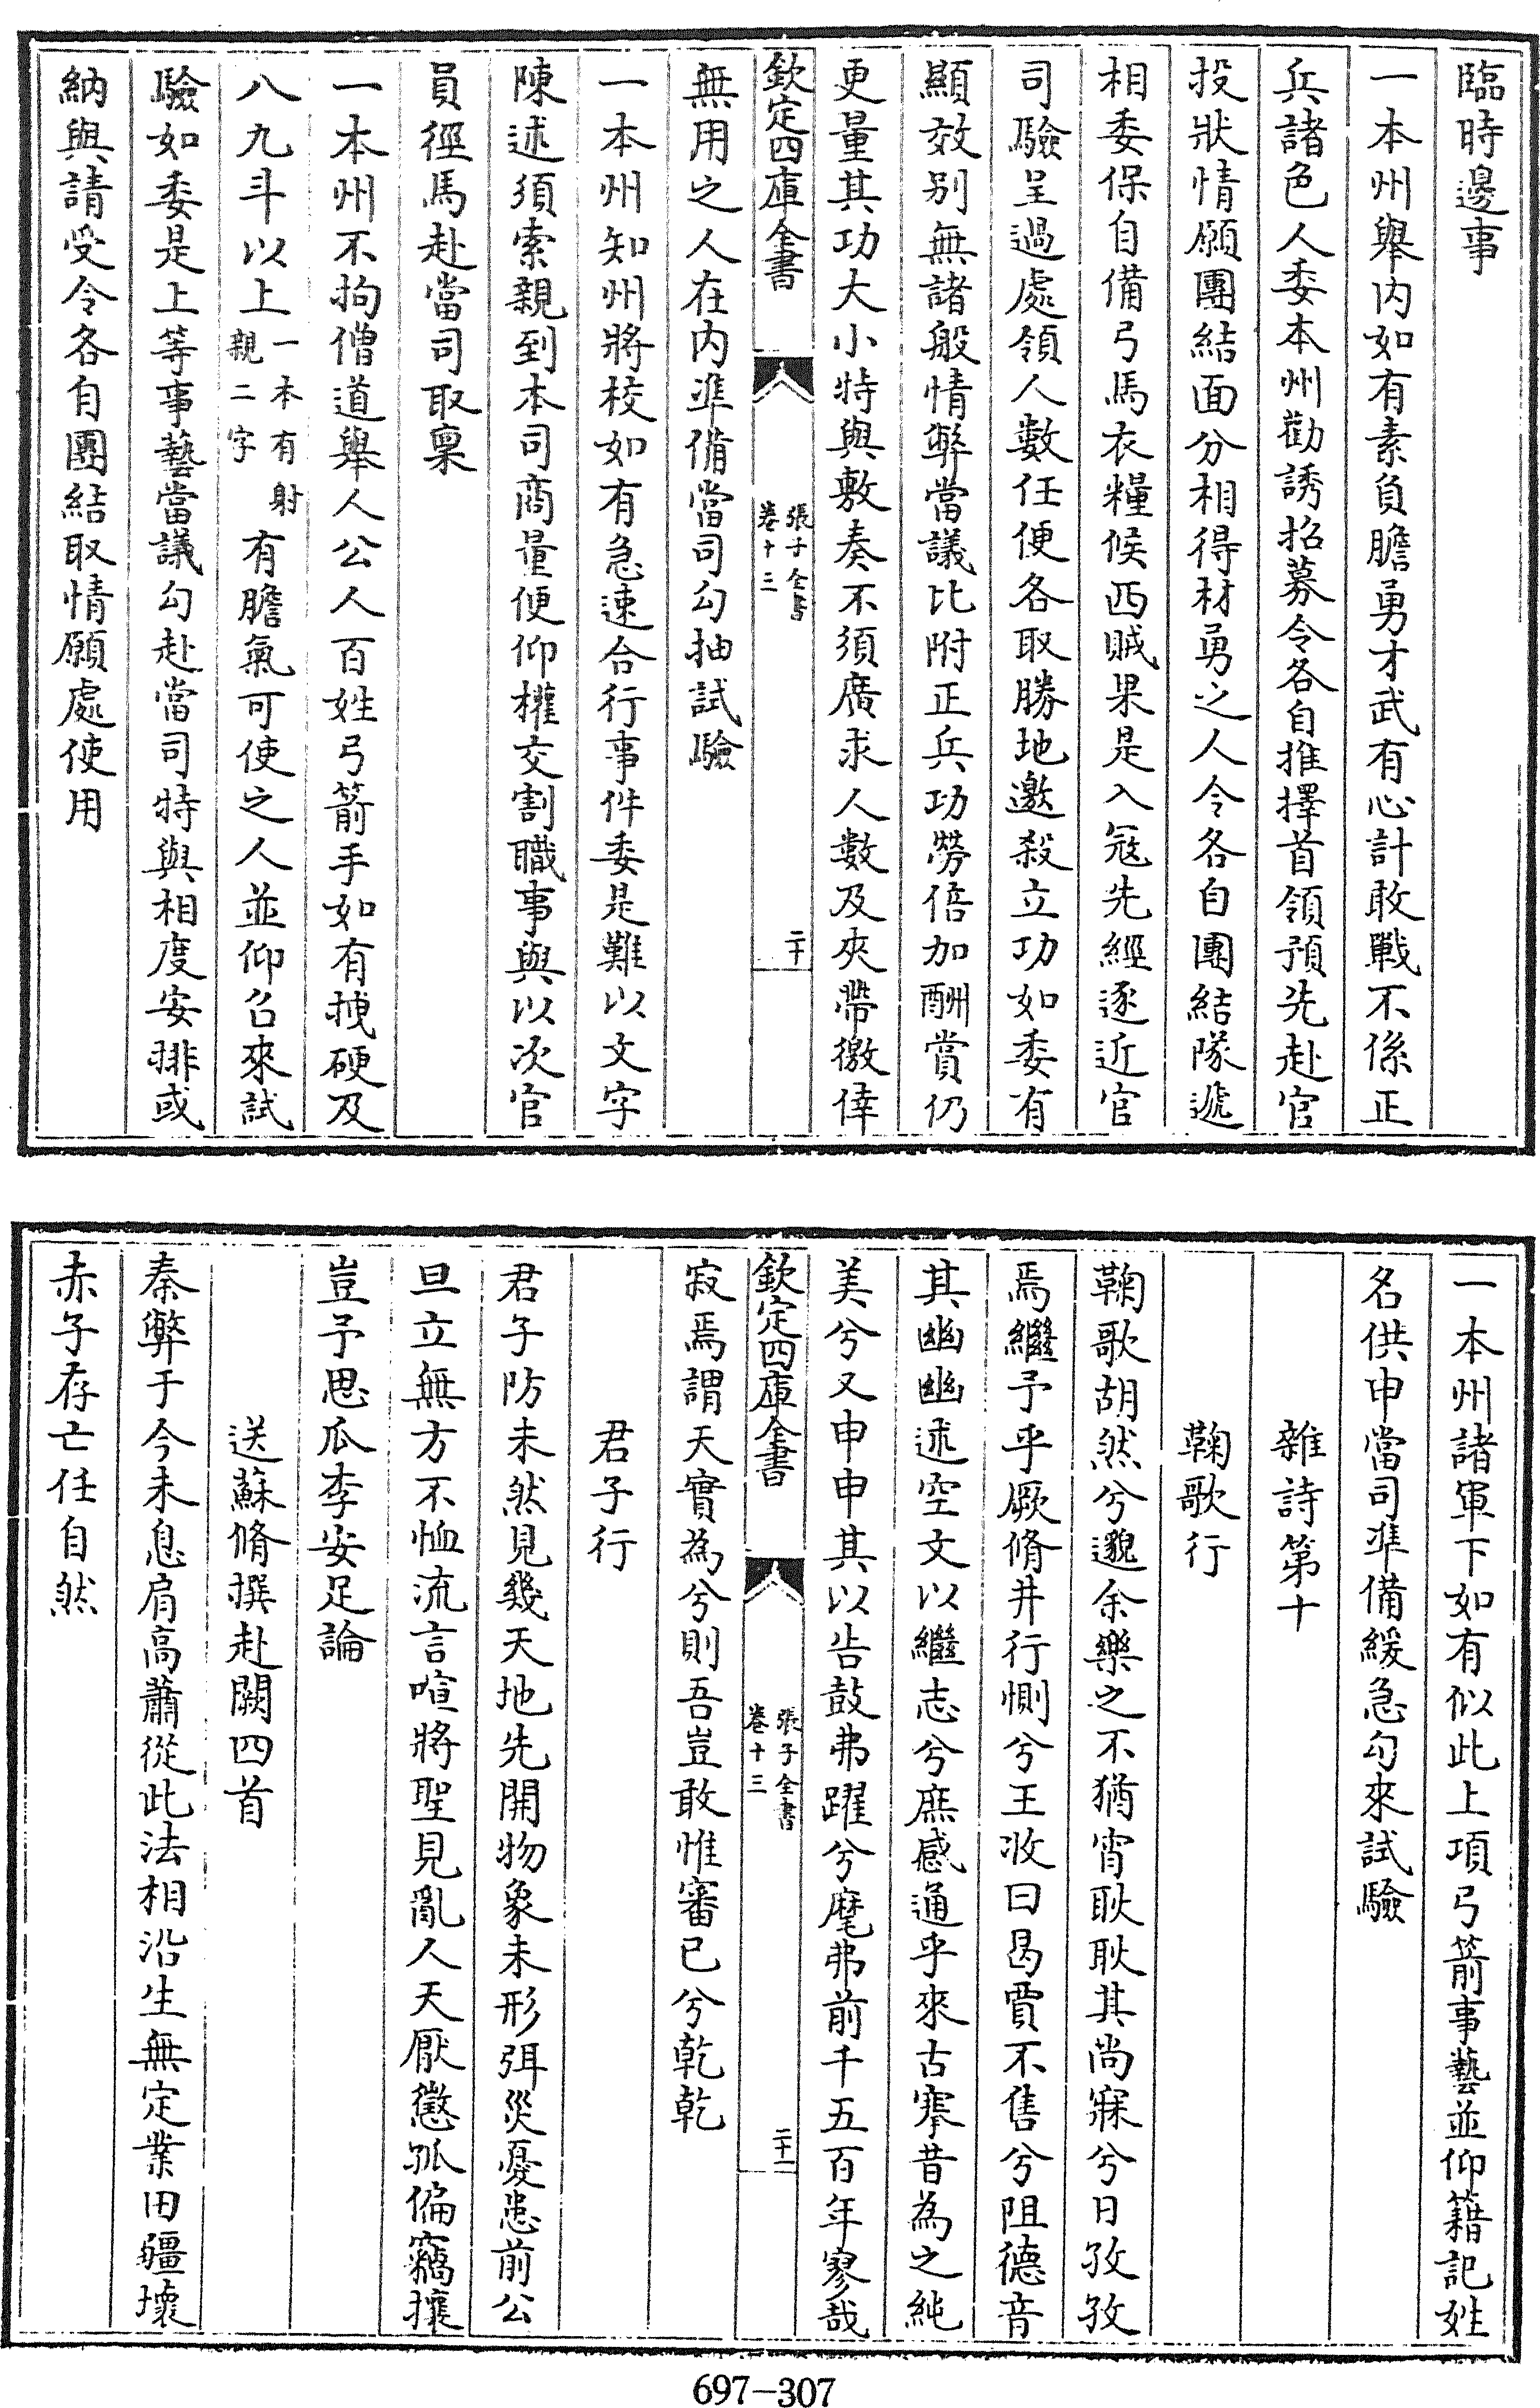 臨時邊事
一本州舉内如有素負膽勇才武有心計敢戰不係正
兵諸色人委本州勸誘招募令各自推擇首領預先赴官
投狀情願團結面分相得材勇之人令各自團結隊遞
相委保自備弓馬衣糧候西賊果是入冦先經逐近官
司驗呈過處領人數任便各取勝地邀殺立功如委有
顯效别無諸般情弊當議比附正兵功勞倍加酬賞仍
更量其功大小特與敷奏不須廣求人數及夾帶徼倖
欽定四庫全書
張子全書
卷十三
二十
無用之人在内準備當司勾抽試驗
一本州知州將校如有急速合行事件委是難以文字
陳述須索親到本司商量便仰權交割職事與以次官
員徑馬赴當司取稟
一本州不拘僧道舉人公人百姓弓箭手如有拽硬及
八九斗以上一本有射親二字有膽氣可使之人並仰召來試
驗如委是上等事藝當議勾赴當司特與相度安排或
納與請受令各自團結取情願處使用
一本州諸軍下如有似此上項弓箭事藝並仰籍記姓
名供申當司準備緩急勾來試驗
雜詩第十
鞠歌行
鞠歌胡然兮邈余樂之不猶宵耿耿其尚寐兮日孜孜
焉繼予乎厥脩井行惻兮王收曰曷賈不售兮阻德音
其幽幽述空文以繼志兮庶感通乎來古搴昔為之純
美兮又申申其以告鼓弗躍兮麾弗前千五百年寥哉
欽定四庫全書
張子全書
卷十三
二十一
寂焉謂天實為兮則吾豈敢惟審已兮乾乾
君子行
君子防未然見幾天地先開物象未形弭災憂患前公
旦立無方不恤流言喧將聖見亂人天厭懲孤偏竊攘
豈予思瓜李安足論
送蘇脩撰赴闕四首
秦弊于今未息肩高蕭從此法相沿生無定業田疆壞
赤子存亡任自然
697-307